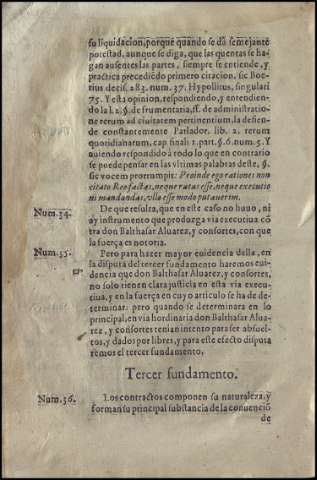 su liquidacion, porque quando se dà semejante
potestad, aunque se diga, que las quentas se ha-
gan ausentes las partes, siempre se entiende, y
practica precediẽdo primero citacion, sic Boe-
rius decis. 283. num. 37. Hypollitus, singulari
75. Y esta opinion, respondiendo, y entendien-
do la l. 2. §. de frumentaria, ff. de administratio-
ne rerum ad ciuitatem pertinentium, la defien-
de constantemente Parlador. lib. 2. rerum
quotidianarum, cap. finali 1. part. §. 6. num. 5. Y
auiendo respõdido à todo lo que en contrario
se puede pensar en las vltimas palabras deste, §.
sic vocem prorrumpit: Proinde ego rationes non
citato Reo factas, neque ratas esse, neque executio
ni mandandas, vllo esse modo putauerim.
Num. 34.
De que resulta, que en este caso no huuo, ni
ay instrumento que produzga via executiua cõ
tra don Balthasar Aluarez, y consortes, con que
la fuerça es notoria.
Num. 35.
Pero para hazer mayor euidencia della, en
la disputa del tercer fundamento haremos eui-
dencia que don Balthasar Aluarez, y consortes,
no solo tienen clara justicia en esta via execu-
tiua, y en la fuerça en cuyo articulo se ha de de-
terminar, pero quando se determinara en lo
principal, en via hordinaria don Balthasar Alua-
rez, y consortes tenian intento para ser absuel-
tos, y dados por libres, y para este efecto disputa
remos el tercer fundamento.
Tercer fundamento.
Num. 36.
Los contractos componen su naturaleza, y
forman su principal substancia de la conuenciõ
de